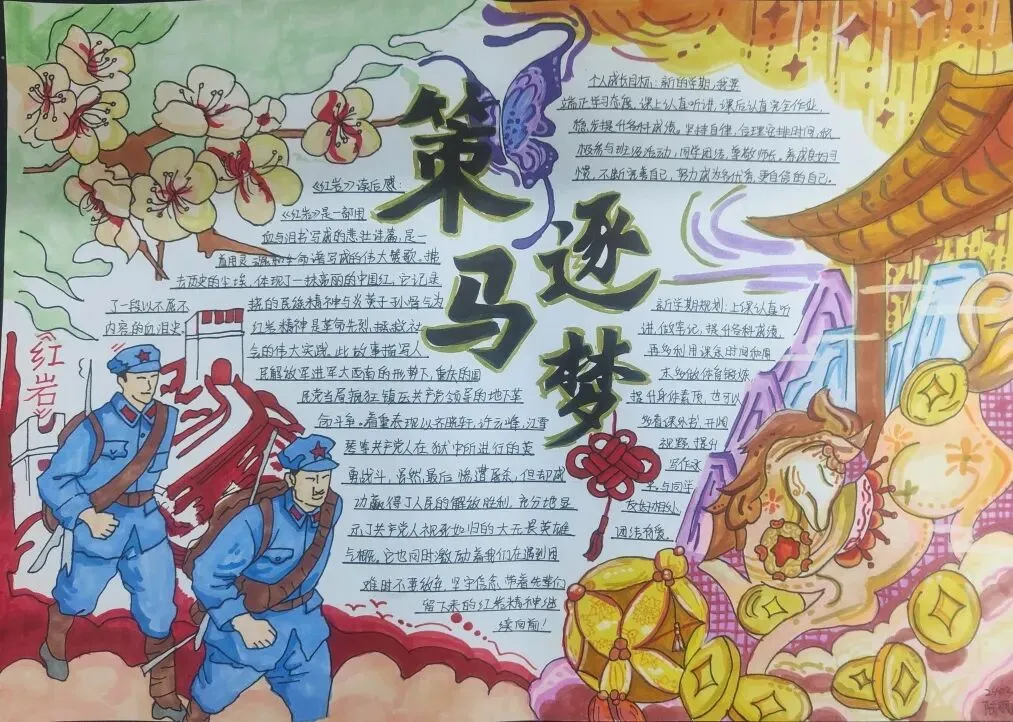 策马
逐梦
《红岩》读后感:
《红岩》是一部用
血与泪书写成的悲壮诗篇,是一
首用灵魂和生命谱写成的伟大赞歌。掸
去历史的尘埃,体现了一抹亮丽的中国红,它记是
了一段以不屈不
挠的民族精神与炎黄子孙
内容的血泪史。
红岩精神是革命先烈拯救
的伟大实践。此故事描写人
民解放军进军大西南的形势下,重庆的国
民党当局疯狂镇压共产党领导的地下革
命斗争。着重表现以齐晓轩,许云峰,江雪
琴等共产党人在狱中所进行的英
勇战斗,虽然最后惨遭屠杀,但却成
功赢得了人民的解放胜利,充分地显
示了共产党人视死如归的大无畏英雄
与概。它也同时激励着我们在遇到困
难时不要放弃,坚守信念,带着先辈们
留下来的红岩精神继
续向前!
《红岩》
个人成长目标:新的学期,我要
端正学习态度,课上认真听讲,课后认真完全作业,
稳步提升各科成绩。坚持自律,合理安排时间,积
极参与班级活动,同学团结,尊敬师长。养成良好习
惯,不断完善自己,努力成为为优秀,更自信的自己。
新学期规划:上课认真听
讲,做笔记,提升各科成绩,
再多利用课余时间和周
末多做体育锻炼,
提升身体素质,也可以
多看课外书,开阔
视野,提升
写作水
平。与同学
友好相处,
团结有爱。